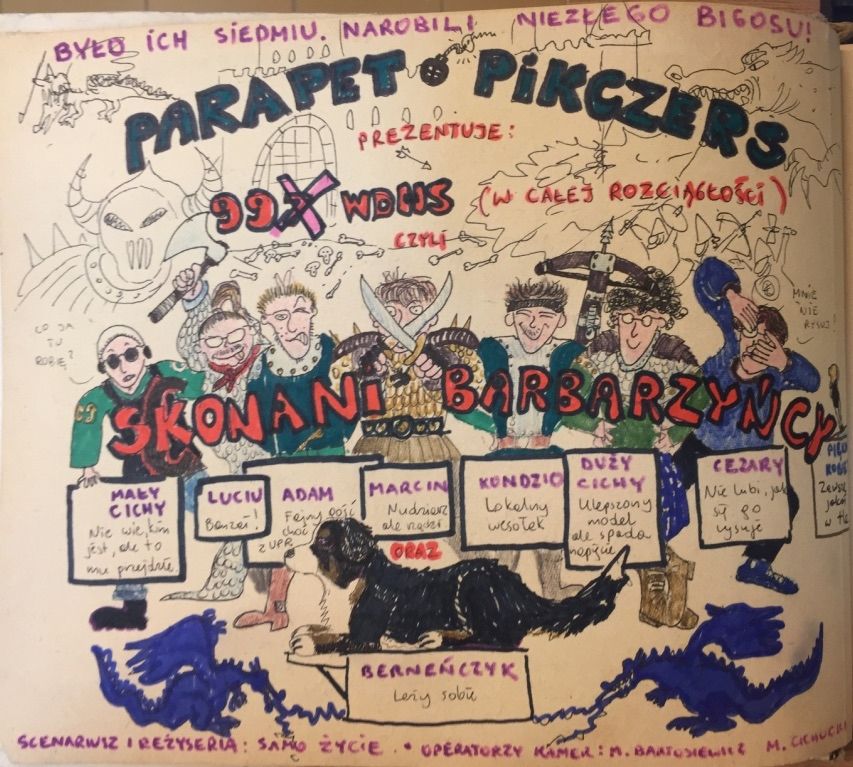 BYŁO ICH SIEDMIU. NAROBILI NIEZŁEGO BIGOSU!
PARAPET PIKCZERS
PREZENTUJE:
99, WDHS (W CAŁEJ ROZCIĄGŁOŚCI)
CZYLI
CO JA
TU
ROBIĘ?
MNIE
NIE
RYSUJ!
SKONANI BARBARZYŃCY
MAŁY
CICHY
Nie wie, kim
jest, ale to
mu przejdzie
LUCIU
Banzai!
ADAM
Fajny gość
choć
z UPR
MARCIN
Nudziarz
ale rządzi
KONDZIO
Lokalny
wesołek
DUŻY
CICHY
Ulepszony
model
ale spada
napięcie
CEZARY
Nie lubi, jak
się go
rysuje
w tle
ORAZ
BERNEŃCZYK
Leży sobie
SCENARIUSZ I REŻYSERIA: SAMO ŻYCIE. • OPERATORZY KAMER: M. BARTOSIEWICZ M. CICHOCKI